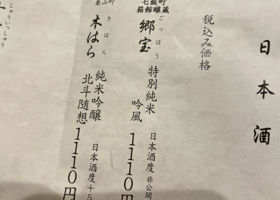 日本酒
税込み価格
七飯町
箱館醸蔵
ごっぽう
郷宝
特別純米
吟風
日本酒度 非公開
1110円
きはら
木はら
純米吟醸
北斗随想
日本酒度+5
1110円
じょうしょう